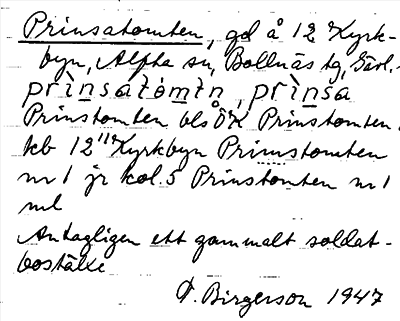 Prinsatomten, gd å 12 Kyrk-
byn, Alfta sn, Bollnäs tg, Gävl.
prìnsatòmtn, prìnsa
Prinstomten bls ÖK Prinstomten.
kb 12 Kyrkbyn Prinstomten
nr 1 jr kol. 5 Prinstomten nr 1
ml
Antagligen ett gammalt soldat-
boställe
Birgerson 1947